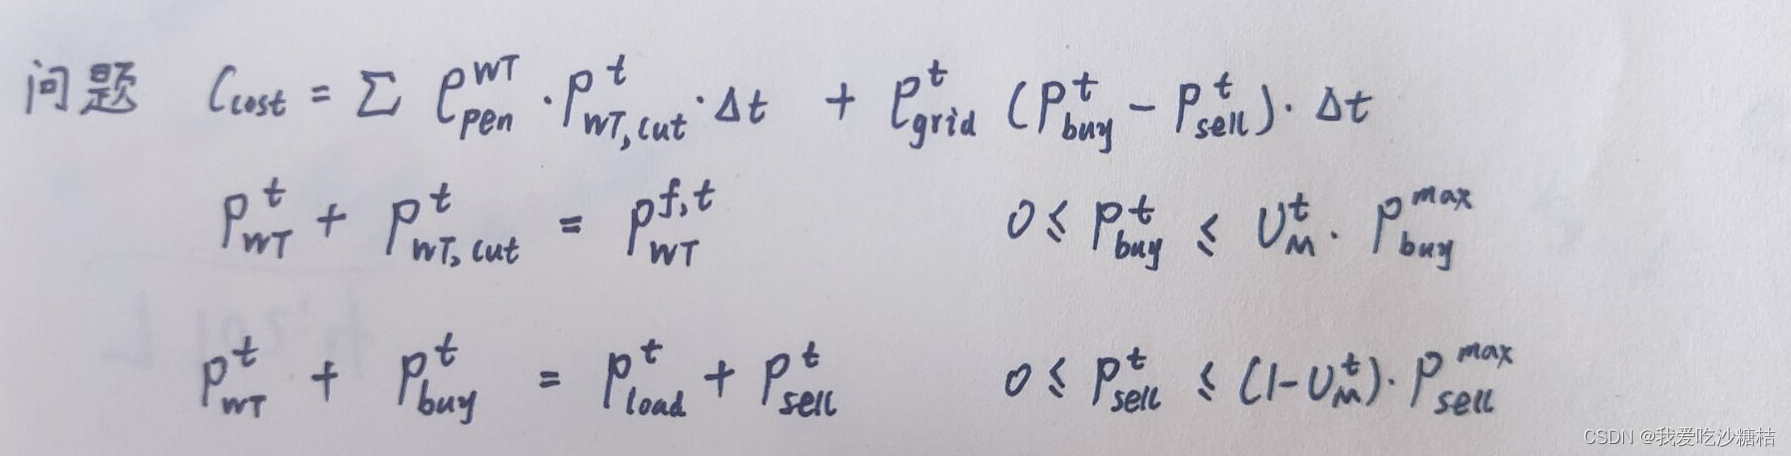 问题 C_cost = Σ ρ_pen^WT · P_WT,cut^t · Δt + ρ_grid^t (P_buy^t − P_sell^t) · Δt
P_WT^t + P_WT,cut^t = P_WT^f,t 0 ≤ P_buy^t ≤ U_M^t · P_buy^max
P_WT^t + P_buy^t = P_load^t + P_sell^t 0 ≤ P_sell^t ≤ (1−U_M^t) · P_sell^max
CSDN @我爱吃沙糖桔